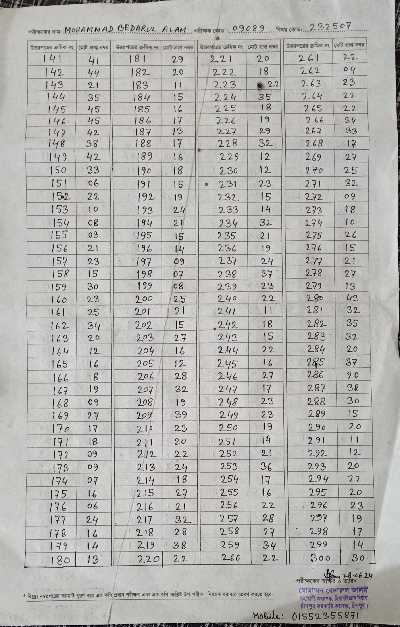 পরীক্ষকের নাম MOHAMMAD BEDARUL ALAM পরীক্ষক কোড: 09089 বিষয় কোড: 222507
উত্তরপত্রের ক্রমিক নং মোট প্রাপ্ত নম্বর উত্তরপত্রের ক্রমিক নং মোট প্রাপ্ত নম্বর উত্তরপত্রের ক্রমিক নং মোট প্রাপ্ত নম্বর উত্তরপত্রের ক্রমিক নং মোট প্রাপ্ত নম্বর
141 41 181 29 221 20 261 22
142 44 182 20 222 18 262 04
143 21 183 11 223 22 263 23
144 35 184 15 224 35 264 22
145 45 185 16 225 18 265 22
146 45 186 17 226 19 266 34
147 42 187 13 227 29 267 33
148 38 188 17 228 32 268 17
149 42 189 16 229 12 269 27
150 33 190 18 230 12 270 25
151 06 191 15 231 23 271 32
152 22 192 19 232 15 272 09
153 10 193 24 233 14 273 18
154 08 194 21 234 32 274 10
155 03 195 15 235 21 275 26
156 21 196 14 236 19 276 15
157 23 197 09 237 24 277 21
158 15 198 07 238 37 278 27
159 30 199 08 239 23 279 13
160 23 200 25 240 22 280 40
161 25 201 21 241 11 281 32
162 34 202 15 242 18 282 35
163 20 203 27 243 15 283 32
164 12 204 16 244 22 284 20
165 16 205 12 245 16 285 37
166 18 206 28 246 27 286 20
167 19 207 32 247 17 287 38
168 09 208 19 248 23 288 30
169 27 209 39 249 23 289 15
170 17 210 23 250 19 290 20
171 18 211 20 251 14 291 11
172 09 212 22 252 21 292 12
173 09 213 24 253 36 293 20
174 07 214 18 254 17 294 27
175 16 215 27 255 16 295 20
176 06 216 21 256 22 296 23
177 24 217 32 257 28 297 19
178 16 218 28 258 27 298 17
179 14 219 38 259 34 299 14
180 13 220 22 260 22 300 30
Mobile: 01552355871